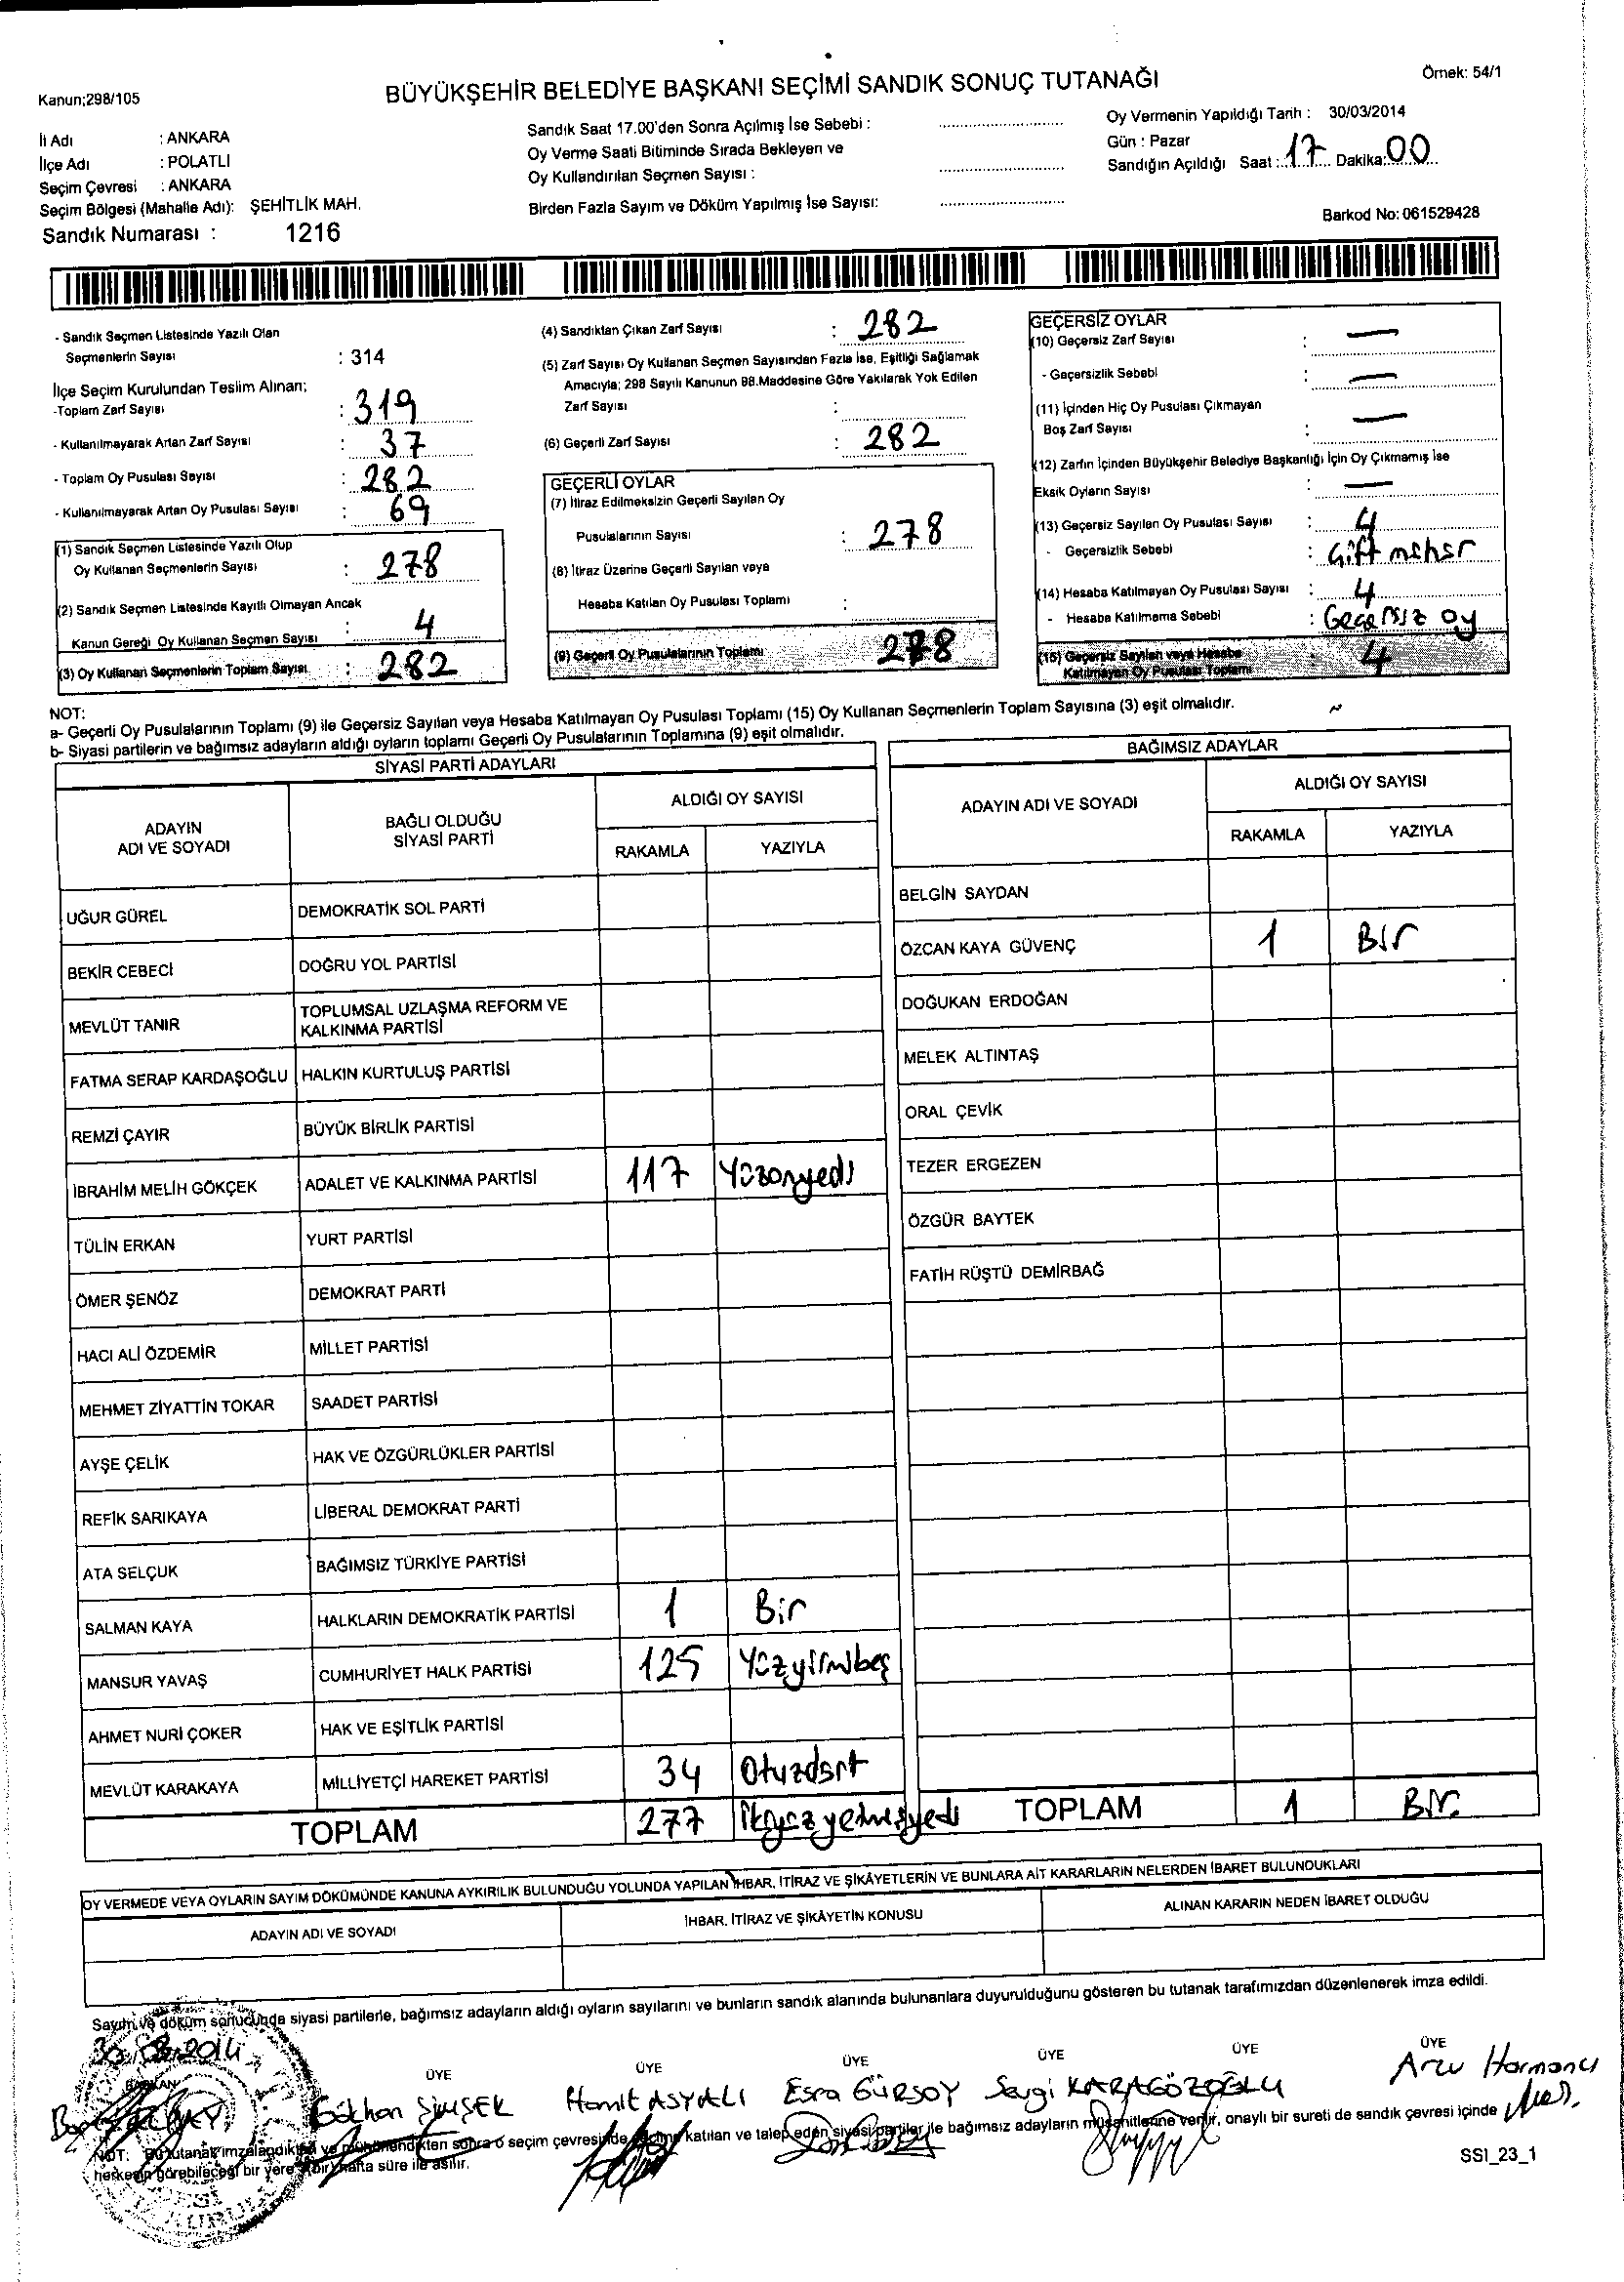 Kanun;298/105
BÜYÜKŞEHİR BELEDİYE BAŞKANI SEÇİMİ SANDIK SONUÇ TUTANAĞI
Örnek: 54/1
İl Adı : ANKARA
İlçe Adı : POLATLI
Seçim Çevresi : ANKARA
Seçim Bölgesi (Mahalle Adı): ŞEHİTLİK MAH.
Sandık Numarası : 1216
Sandık Saat 17.00'den Sonra Açılmış İse Sebebi :
Oy Verme Saati Bitiminde Sırada Bekleyen ve
Oy Kullandırılan Seçmen Sayısı :
Birden Fazla Sayım ve Döküm Yapılmış İse Sayısı:
Oy Vermenin Yapıldığı Tarih : 30/03/2014
Gün : Pazar
Sandığın Açıldığı Saat : 17 Dakika: 00
Barkod No: 061529428
- Sandık Seçmen Listesinde Yazılı Olan
Seçmenlerin Sayısı : 314
İlçe Seçim Kurulundan Teslim Alınan;
-Toplam Zarf Sayısı : 319
- Kullanılmayarak Artan Zarf Sayısı : 37
- Toplam Oy Pusulası Sayısı : 282
- Kullanılmayarak Artan Oy Pusulası Sayısı : 69
(1) Sandık Seçmen Listesinde Yazılı Olup
Oy Kullanan Seçmenlerin Sayısı : 278
(2) Sandık Seçmen Listesinde Kayıtlı Olmayan Ancak
Kanun Gereği Oy Kullanan Seçmen Sayısı : 4
(3) Oy Kullanan Seçmenlerin Toplam Sayısı : 282
(4) Sandıktan Çıkan Zarf Sayısı : 282
(5) Zarf Sayısı Oy Kullanan Seçmen Sayısından Fazla İse, Eşitliği Sağlamak
Amacıyla; 298 Sayılı Kanunun 98.Maddesine Göre Yakılarak Yok Edilen
Zarf Sayısı :
(6) Geçerli Zarf Sayısı : 282
GEÇERLİ OYLAR
(7) İtiraz Edilmeksizin Geçerli Sayılan Oy
Pusulalarının Sayısı : 278
(8) İtiraz Üzerine Geçerli Sayılan veya
Hesaba Katılan Oy Pusulası Toplamı :
(9) Geçerli Oy Pusulalarının Toplamı 278
GEÇERSİZ OYLAR
(10) Geçersiz Zarf Sayısı : —
- Geçersizlik Sebebi : —
(11) İçinden Hiç Oy Pusulası Çıkmayan
Boş Zarf Sayısı : —
(12) Zarfın İçinden Büyükşehir Belediye Başkanlığı İçin Oy Çıkmamış İse
Eksik Oyların Sayısı : —
(13) Geçersiz Sayılan Oy Pusulası Sayısı : 4
- Geçersizlik Sebebi : Çift mühür
(14) Hesaba Katılmayan Oy Pusulası Sayısı : 4
- Hesaba Katılmama Sebebi : Geçersiz oy
(15) Geçersiz Sayılan veya Hesaba
Katılmayan Oy Pusulası Toplamı : 4
NOT:
a- Geçerli Oy Pusulalarının Toplamı (9) ile Geçersiz Sayılan veya Hesaba Katılmayan Oy Pusulası Toplamı (15) Oy Kullanan Seçmenlerin Toplam Sayısına (3) eşit olmalıdır.
b- Siyasi partilerin ve bağımsız adayların aldığı oyların toplamı Geçerli Oy Pusulalarının Toplamına (9) eşit olmalıdır.
SİYASİ PARTİ ADAYLARI
ADAYIN ADI VE SOYADI BAĞLI OLDUĞU SİYASİ PARTİ ALDIĞI OY SAYISI
RAKAMLA YAZIYLA
UĞUR GÜREL DEMOKRATİK SOL PARTİ
BEKİR CEBECİ DOĞRU YOL PARTİSİ
MEVLÜT TANIR TOPLUMSAL UZLAŞMA REFORM VE KALKINMA PARTİSİ
FATMA SERAP KARDAŞOĞLU HALKIN KURTULUŞ PARTİSİ
REMZİ ÇAYIR BÜYÜK BİRLİK PARTİSİ
İBRAHİM MELİH GÖKÇEK ADALET VE KALKINMA PARTİSİ 117 Yüzonyedi
TÜLİN ERKAN YURT PARTİSİ
ÖMER ŞENÖZ DEMOKRAT PARTİ
HACI ALİ ÖZDEMİR MİLLET PARTİSİ
MEHMET ZİYATTİN TOKAR SAADET PARTİSİ
AYŞE ÇELİK HAK VE ÖZGÜRLÜKLER PARTİSİ
REFİK SARIKAYA LİBERAL DEMOKRAT PARTİ
ATA SELÇUK BAĞIMSIZ TÜRKİYE PARTİSİ
SALMAN KAYA HALKLARIN DEMOKRATİK PARTİSİ 1 Bir
MANSUR YAVAŞ CUMHURİYET HALK PARTİSİ 125 Yüzyirmibeş
AHMET NURİ ÇOKER HAK VE EŞİTLİK PARTİSİ
MEVLÜT KARAKAYA MİLLİYETÇİ HAREKET PARTİSİ 34 Otuzdört
TOPLAM 277 İkiyüzyetmişyedi
BAĞIMSIZ ADAYLAR
ADAYIN ADI VE SOYADI ALDIĞI OY SAYISI
RAKAMLA YAZIYLA
BELGİN SAYDAN
ÖZCAN KAYA GÜVENÇ 1 Bir
DOĞUKAN ERDOĞAN
MELEK ALTINTAŞ
ORAL ÇEVİK
TEZER ERGEZEN
ÖZGÜR BAYTEK
FATİH RÜŞTÜ DEMİRBAĞ
TOPLAM 1 Bir
OY VERMEDE VEYA OYLARIN SAYIM DÖKÜMÜNDE KANUNA AYKIRILIK BULUNDUĞU YOLUNDA YAPILAN İHBAR, İTİRAZ VE ŞİKÂYETLERİN VE BUNLARA AİT KARARLARIN NELERDEN İBARET BULUNDUKLARI
ADAYIN ADI VE SOYADI İHBAR, İTİRAZ VE ŞİKÂYETİN KONUSU ALINAN KARARIN NEDEN İBARET OLDUĞU
Sayım ve döküm sonucunda siyasi partilerle, bağımsız adayların aldığı oyların sayılarını ve bunların sandık alanında bulunanlara duyurulduğunu gösteren bu tutanak tarafımızdan düzenlenerek imza edildi.
30.03.2014
BAŞKAN ÜYE ÜYE ÜYE ÜYE ÜYE
Gökhan ŞİMŞEK Hamit ASYALI Esra GÜRSOY Sevgi KARAGÖZOĞLU Arzu Harmancı
NOT: Bu tutanak imzalandıktan ve mühürlendikten sonra o seçim çevresinde seçime katılan ve talep eden siyasi partiler ile bağımsız adayların müşahitlerine verilir, onaylı bir sureti de sandık çevresi içinde
herkesin görebileceği bir yere (bir) hafta süre ile asılır.
SSI_23_1